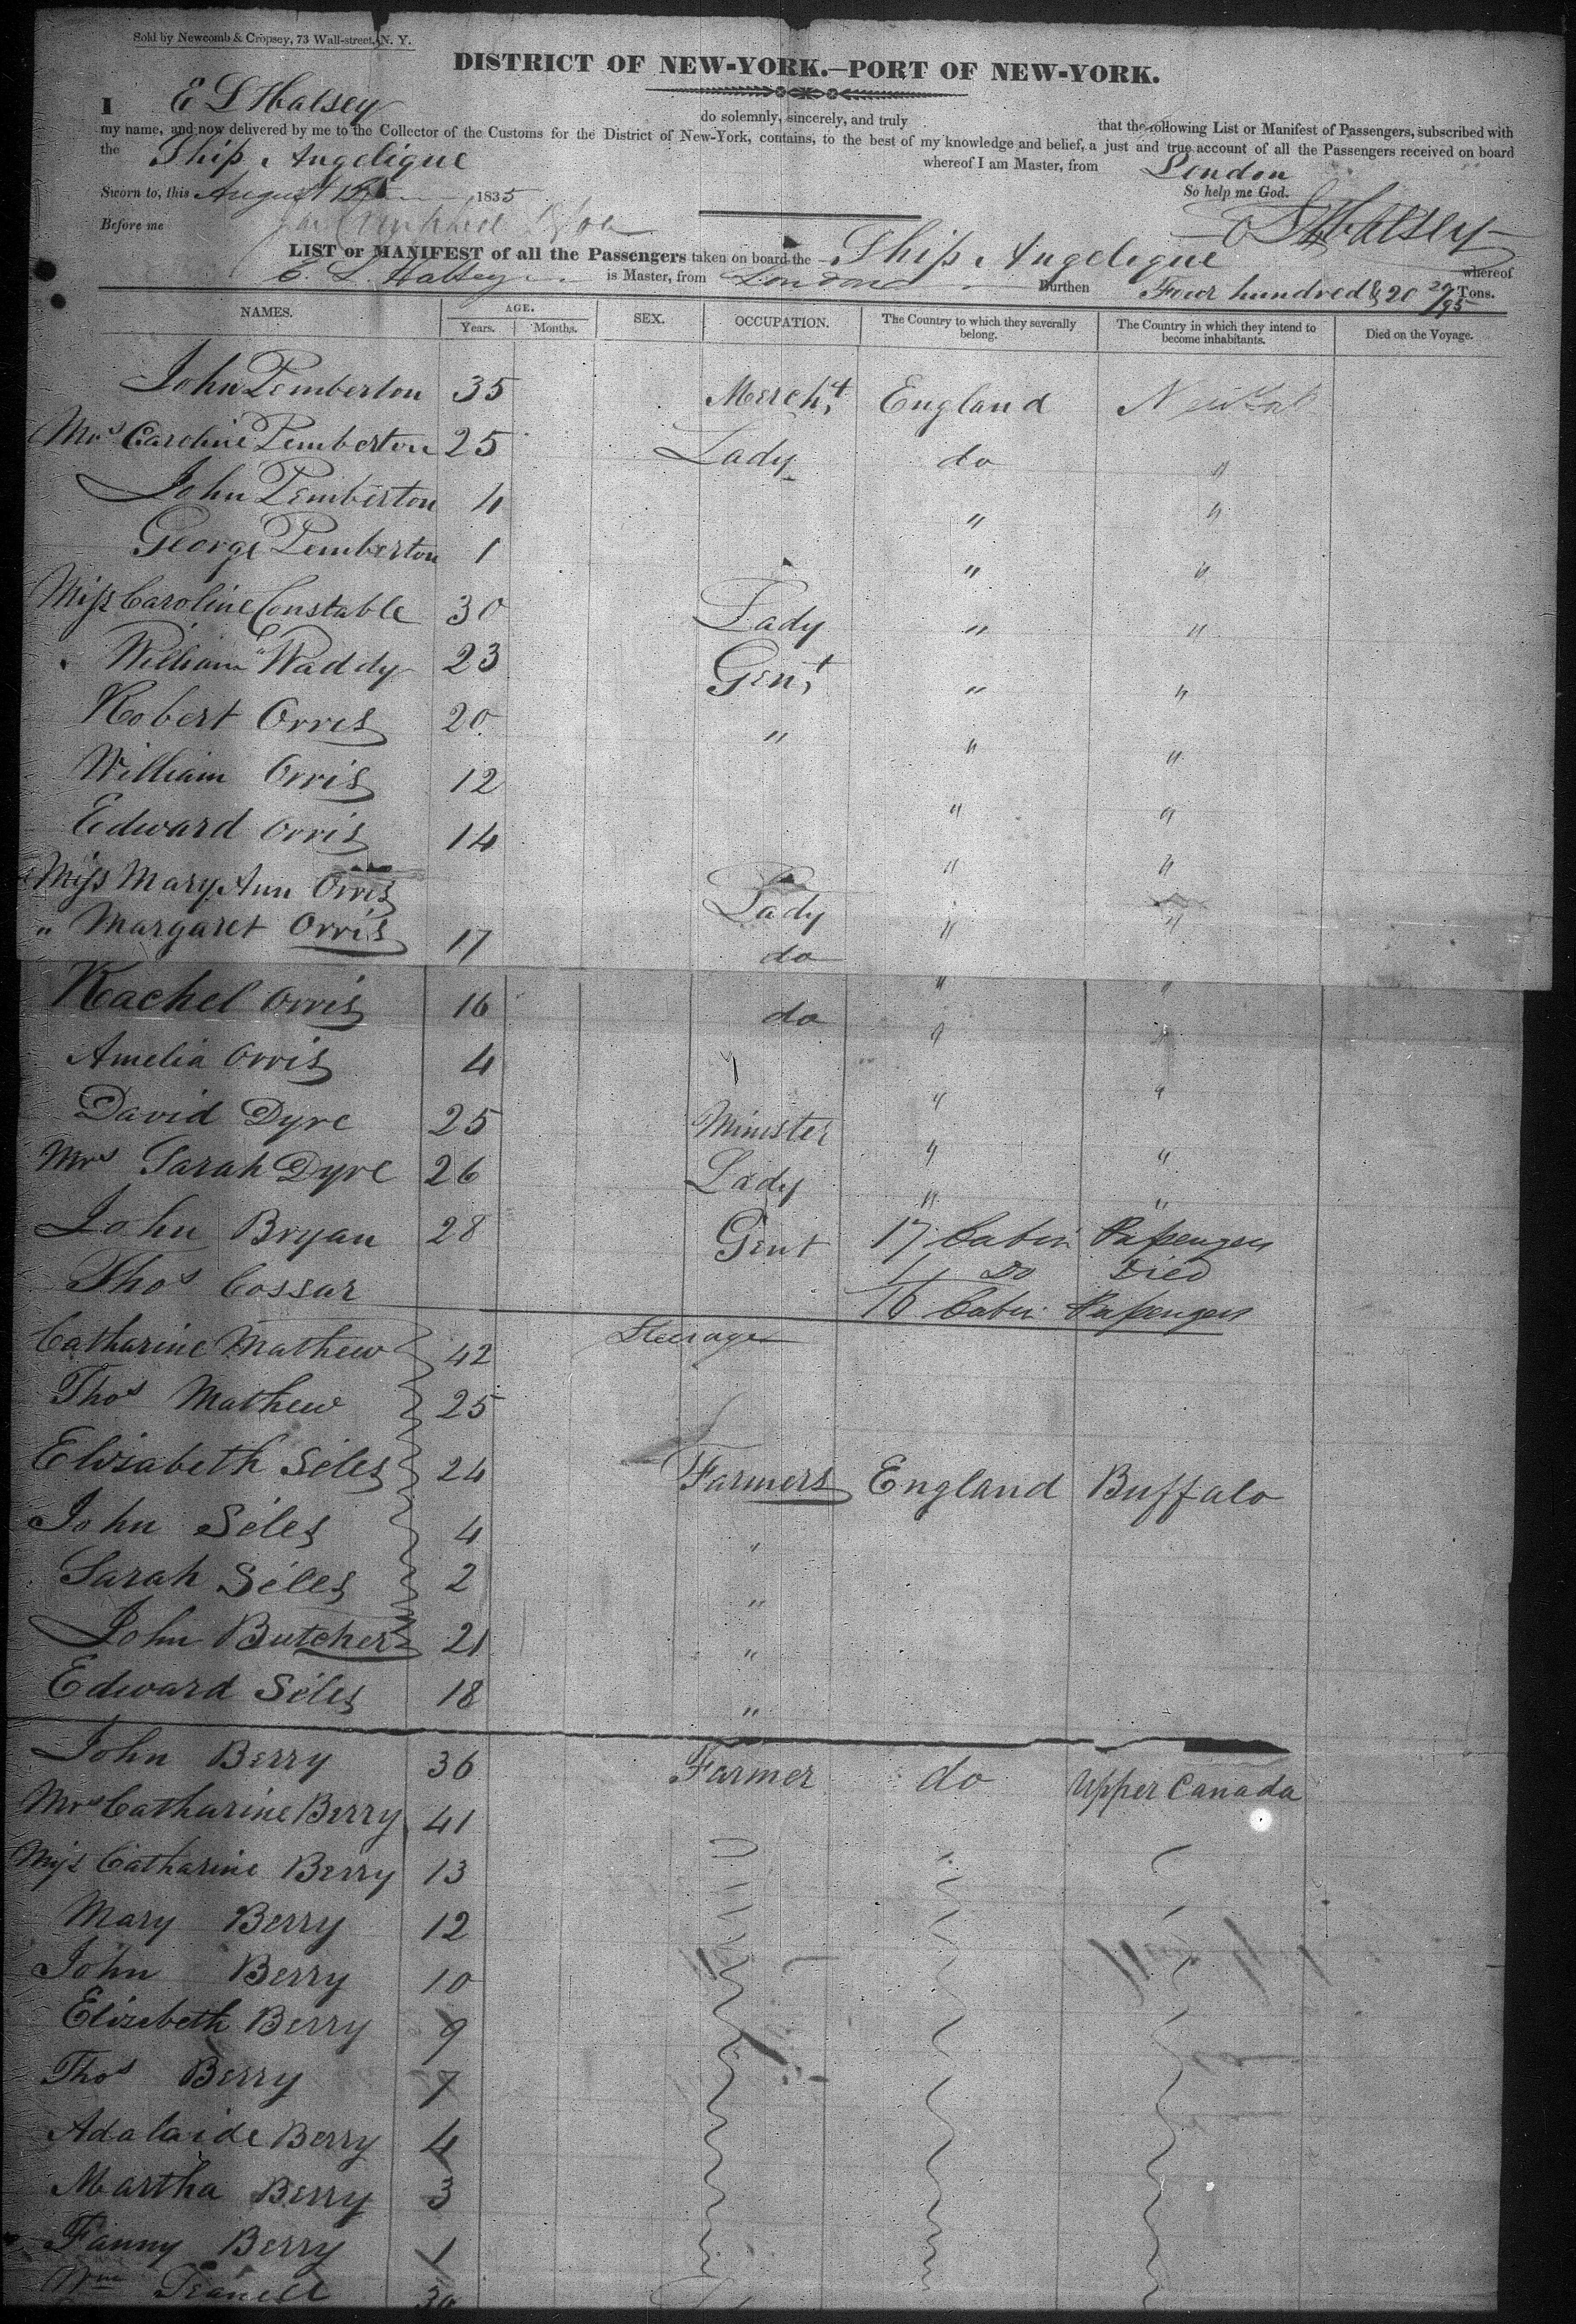 Sold by Newcomb & Cropsey, 73 Wall-street, N. Y.
DISTRICT OF NEW-YORK.—PORT OF NEW-YORK.
I E L Halsey do solemnly, sincerely, and truly that the following List or Manifest of Passengers, subscribed with
my name, and now delivered by me to the Collector of the Customs for the District of New-York, contains, to the best of my knowledge and belief, a just and true account of all the Passengers received on board
the Ship Angelique whereof I am Master, from London
Sworn to, this August 1835 So help me God.
Before me E L Halsey
LIST or MANIFEST of all the Passengers taken on board the Ship Angelique whereof
E. L. Halsey is Master, from London Burthen Four hundred & 20 29/95 Tons.
NAMES. AGE. Years. Months. SEX. OCCUPATION. The Country to which they severally belong. The Country in which they intend to become inhabitants. Died on the Voyage.
John Pemberton 35 Mercht England
Mrs Caroline Pemberton 25 Lady do "
John Pemberton 4 " "
George Pemberton 1 " "
Miss Caroline Constable 30 Lady " "
William Waddy 23 Gent " "
Robert Orris 20 " " "
William Orris 12 " "
Edward Orris 14 " "
Miss Mary Ann Orris Lady " "
" Margaret Orris 17 do " "
Rachel Orris 16 do " "
Amelia Orris 4 " "
David Dyre 25 Minister " "
Mrs Sarah Dyre 26 Lady " "
John Bryan 28 Gent 17 Cabin Passengers
Thos Cossar 1 Do Died
16 Cabin Passengers
Steerage
Catharine Mathew 42
Thos Mathew 25
Elisabeth Siles 24 Farmers England Buffalo
John Siles 4 "
Sarah Siles 2 "
John Butcher 21 "
Edward Siles 18 "
John Berry 36 Farmer do Upper Canada
Mrs Catharine Berry 41
Miss Catharine Berry 13
Mary Berry 12
John Berry 10
Elizebeth Berry 9
Thos Berry 7
Adalaide Berry 4
Martha Berry 3
Fanny Berry 1
Wm 30